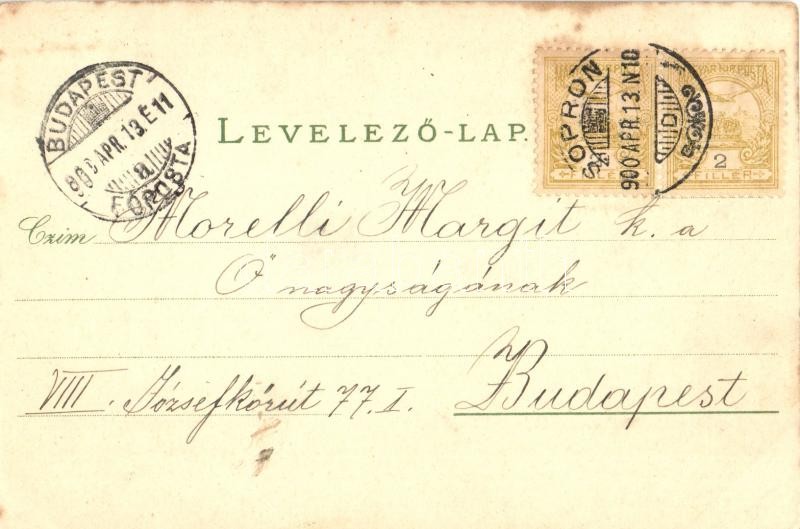 BUDAPEST
900 APR. 13. É 11
8a
FŐPOSTA
SOPRON
900 APR. 13. N 10
D
MAGYAR KIR. POSTA
2
FILLÉR
LEVELEZŐ-LAP.
Czim Morelli Margit k. a
Ő nagyságának
VIII. Józsefkörút 77. I. Budapest